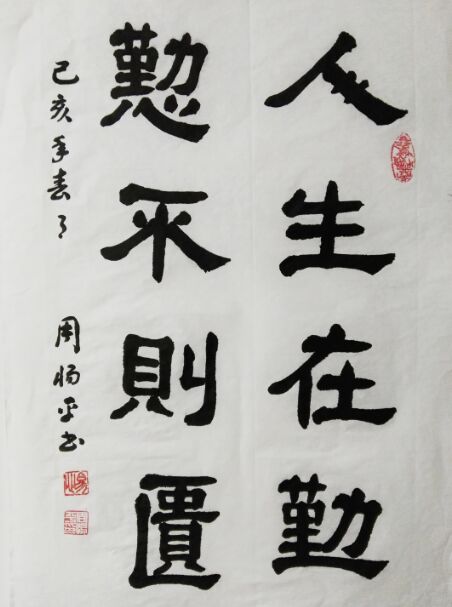 人生在勤
懃不則匱
己亥年春月
周平书